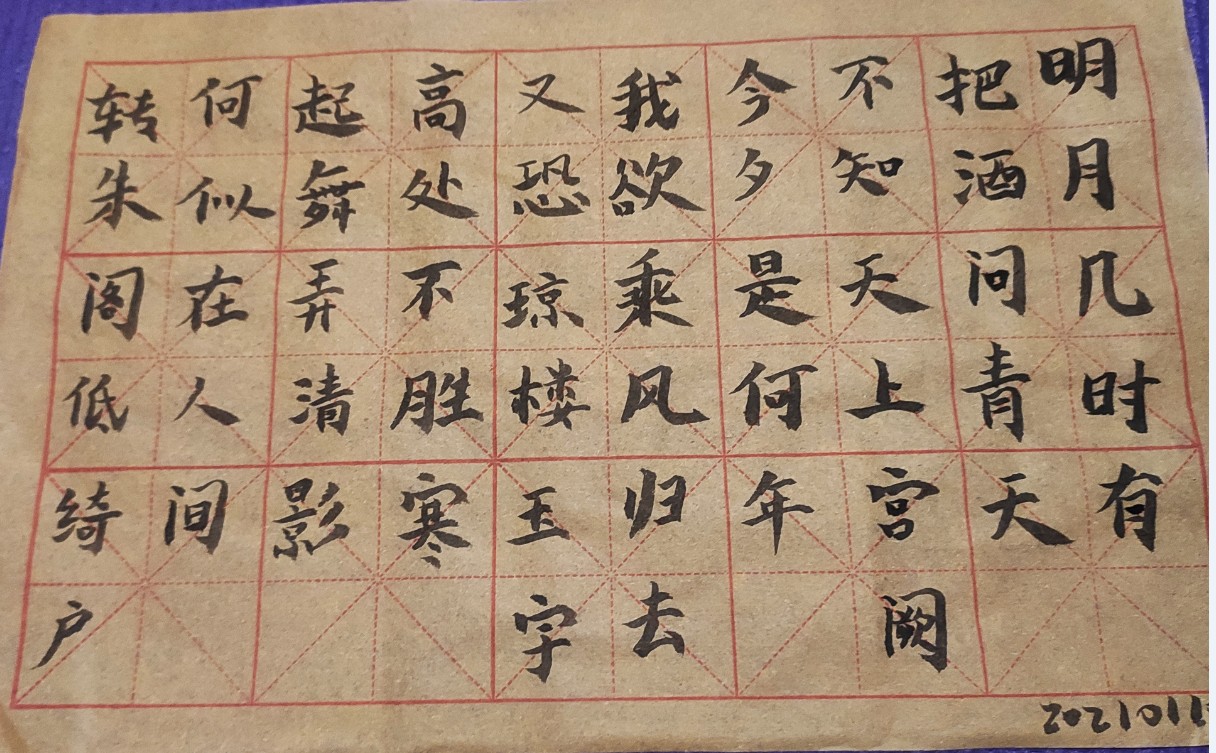 明月几时有
把酒问青天
不知天上宫阙
今夕是何年
我欲乘风归去
又恐琼楼玉宇
高处不胜寒
起舞弄清影
何似在人间
转朱阁低绮户
2021011